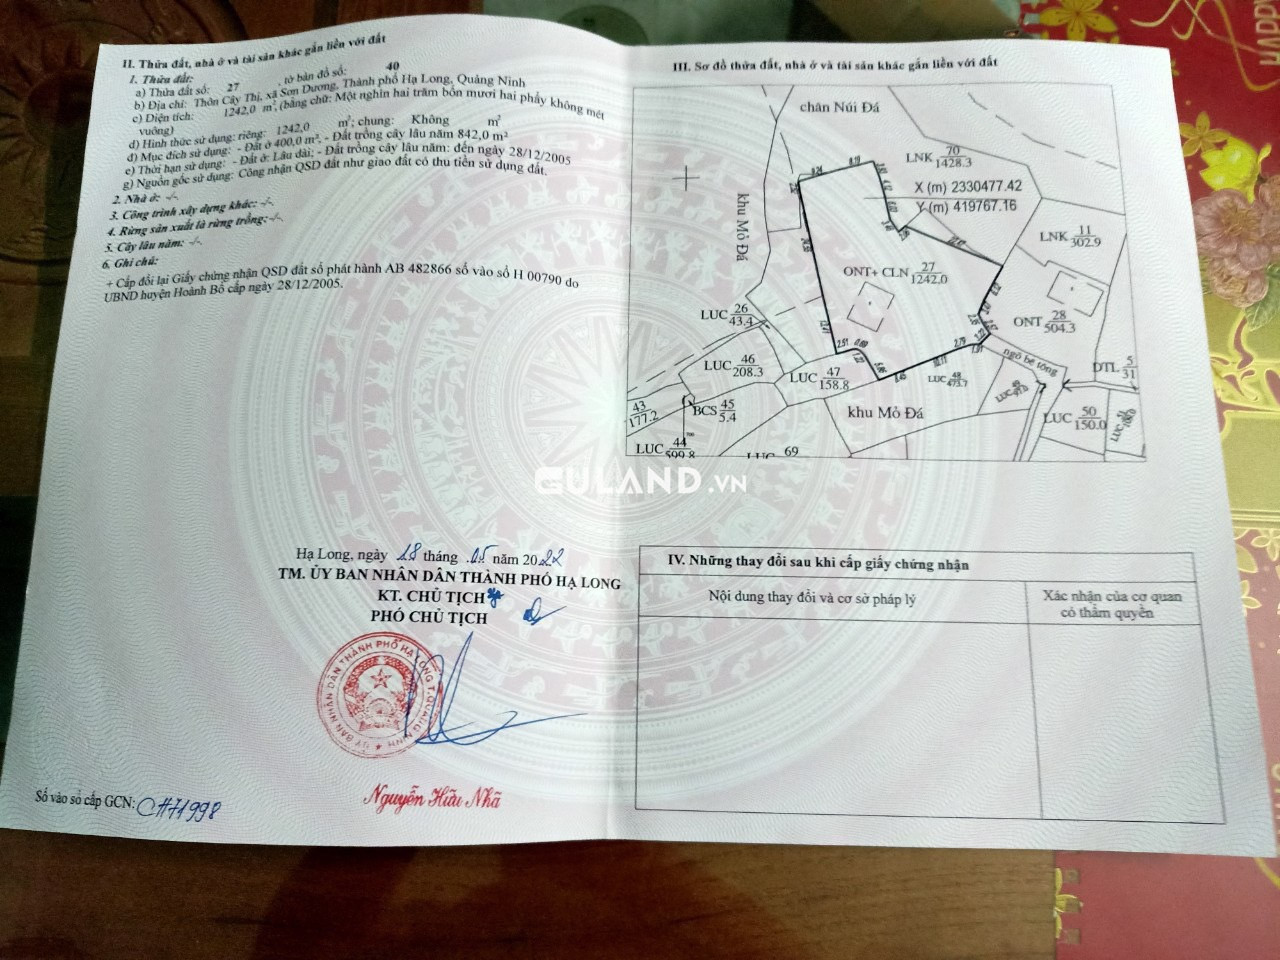 II. Thửa đất, nhà ở và tài sản khác gắn liền với đất
1. Thửa đất:
a) Thửa đất số: 27 , tờ bản đồ số: 40
b) Địa chỉ: Thôn Cây Thị, xã Sơn Dương, Thành phố Hạ Long, Quảng Ninh
c) Diện tích: 1242,0 m², (bằng chữ: Một nghìn hai trăm bốn mươi hai phẩy không mét
vuông)
d) Hình thức sử dụng: riêng: 1242,0 m²; chung: Không m²
đ) Mục đích sử dụng: - Đất ở 400,0 m², - Đất trồng cây lâu năm 842,0 m²
e) Thời hạn sử dụng: - Đất ở: Lâu dài; - Đất trồng cây lâu năm: đến ngày 28/12/2005
g) Nguồn gốc sử dụng: Công nhận QSD đất như giao đất có thu tiền sử dụng đất.
2. Nhà ở: -/-
3. Công trình xây dựng khác: -/-
4. Rừng sản xuất là rừng trồng: -/-
5. Cây lâu năm: -/-
6. Ghi chú:
+ Cấp đổi lại Giấy chứng nhận QSD đất số phát hành AB 482866 số vào sổ H 00790 do
UBND huyện Hoành Bồ cấp ngày 28/12/2005.
Hạ Long, ngày 18 tháng 05 năm 2022
TM. ỦY BAN NHÂN DÂN THÀNH PHỐ HẠ LONG
KT. CHỦ TỊCH
PHÓ CHỦ TỊCH
ỦY BAN NHÂN DÂN THÀNH PHỐ HẠ LONG T.QUẢNG NINH
Nguyễn Hữu Nhã
Số vào sổ cấp GCN: CH71998
III. Sơ đồ thửa đất, nhà ở và tài sản khác gắn liền với đất
chân Núi Đá
LNK 70
1428.3
X (m) 2330477.42
Y (m) 419767.16
khu Mỏ Đá
LNK 11
302.9
ONT+ CLN 27
1242.0
LUC 26
43.4
ONT 28
504.3
LUC 46
208.3
LUC 47
158.8
LUC 48
473.7
ngõ bê tông
DTL 5
31
43
177.2
BCS 45
5.4
khu Mỏ Đá
LUC 50
150.0
LUC 44
599.8
LUC 69
GULAND.VN
IV. Những thay đổi sau khi cấp giấy chứng nhận
Nội dung thay đổi và cơ sở pháp lý
Xác nhận của cơ quan
có thẩm quyền
HAPPY